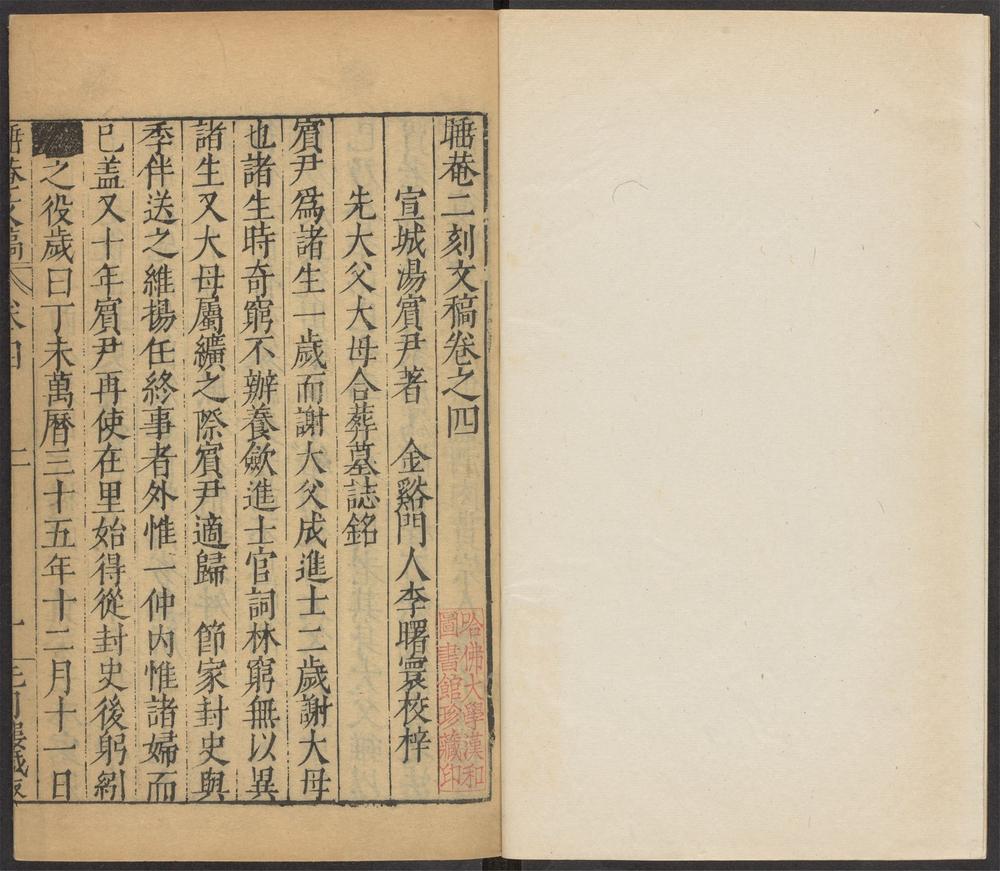 睡菴二刻文稿卷之四
宣城湯賓尹著　金谿門人李曙寰校梓
先大父大母合葬墓誌銘
賓尹爲諸生一歲而謝大父成進士二歲謝大母
也諸生時奇窮不辦養歛進士官詞林窮無以異
諸生又大母屬纊之際賓尹適歸　節家封史與
季伴送之維揚任終事者外惟一仲内惟諸婦而
已盖又十年賓尹再使在里始得從封史後躬紖
之役歲曰丁未萬曆三十五年十二月十一日
睡菴文稿　卷四　一
哈佛大學漢和
圖書館珍藏印